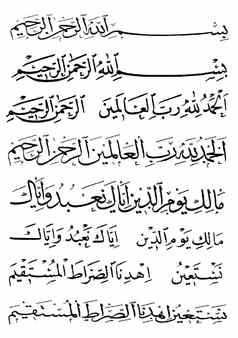 بسم الله الرحمن الرحيم
بِسْمِ اللهِ الرَّحْمٰنِ الرَّحِيْمِ
اَلْحَمْدُ لِلّٰهِ رَبِّ الْعَالَمِيْنَ الرَّحْمٰنِ الرَّحِيْمِ
الحمد لله رب العالمين الرحمن الرحيم
مالك يوم الدين اياك نعبد واياك
مالك يوم الدين اياك نعبد واياك
نستعين اهدنا الصراط المستقيم
نستعين اهدنا الصراط المستقيم